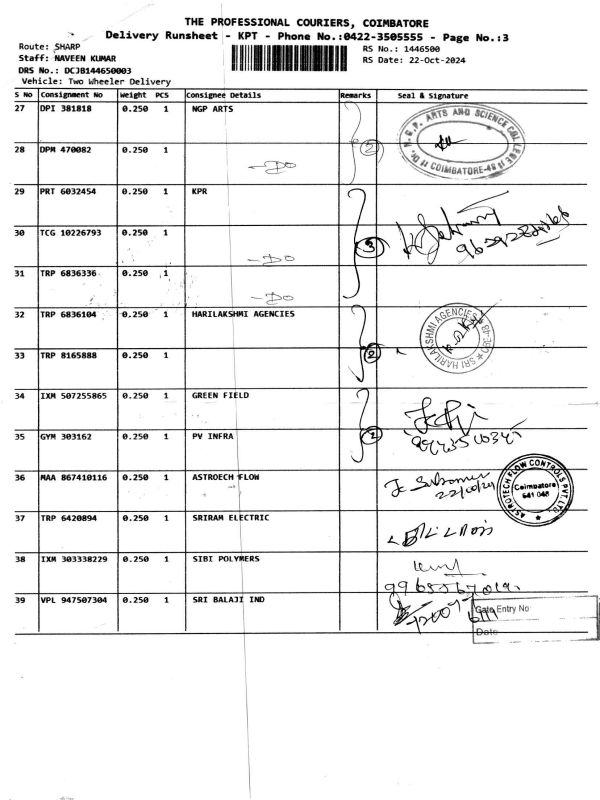 THE PROFESSIONAL COURIERS, COIMBATORE
Delivery Runsheet - KPT - Phone No.:0422-3505555 - Page No.:3
Route: SHARP
RS No.: 1446500
Staff: NAVEEN KUMAR
RS Date: 22-Oct-2024
DRS No.: DCJB144650003
Vehicle: Two Wheeler Delivery
S No Consignment No Weight PCS Consignee Details Remarks Seal & Signature
27 DPI 381818 0.250 1 NGP ARTS
Dr. N.G.P. ARTS AND SCIENCE COLLEGE
COIMBATORE-48
28 DPM 470082 0.250 1 -DO 2
29 PRT 6032454 0.250 1 KPR
30 TCG 10226793 0.250 1 -DO 3
31 TRP 6836336 0.250 1 -DO
32 TRP 6836104 0.250 1 HARILAKSHMI AGENCIES
SRI HARILAKSHMI AGENCIES
33 TRP 8165888 0.250 1 2
34 IXM 507255865 0.250 1 GREEN FIELD
35 GYM 303162 0.250 1 PV INFRA 2
36 MAA 867410116 0.250 1 ASTROECH FLOW
22/10/24
ASTROTECH FLOW CONTROLS PVT. LTD.
Coimbatore
641 048
37 TRP 6420894 0.250 1 SRIRAM ELECTRIC
38 IXM 303338229 0.250 1 SIBI POLYMERS
39 VPL 947507304 0.250 1 SRI BALAJI IND
Gate Entry No
Date